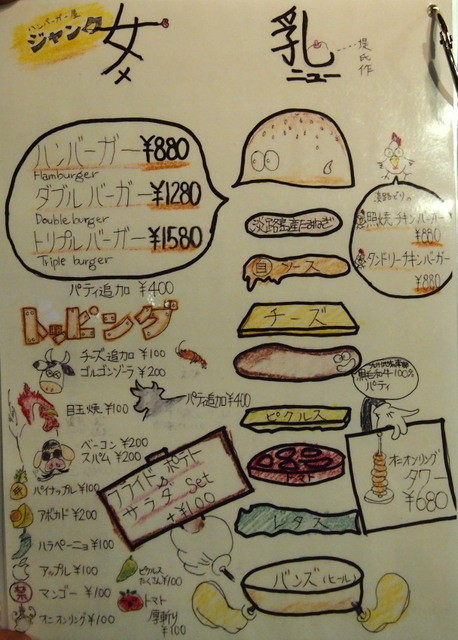 ハンバーガー屋
ジャンク
女
乳
ニュー
ハンバーガー ¥880
Hamburger
ダブルバーガー ¥1280
Double burger
トリプルバーガー ¥1580
Triple burger
パティ追加 ¥400
トッピング
チーズ追加 ¥100
ゴルゴンゾーラ ¥200
目玉焼 ¥100
パティ追加 ¥400
ベーコン ¥200
スパム ¥200
パイナップル ¥100
アボカド ¥200
ハラペーニョ ¥100
アップル ¥100
マンゴー ¥100
オニオンリング ¥100
ピクルス
たくさん ¥100
トマト
厚斬り
¥100
フライドポテト
サラダ Set
+¥100
淡路島産たまねぎ
ソース
チーズ
ピクルス
トマト
レタス
バンズ(ヒール)
淡路どりの
照焼チキンバーガー
¥880
タンドリーチキンバーガー
¥880
黒毛和牛100%
パティ
オニオンリング
タワー
¥680